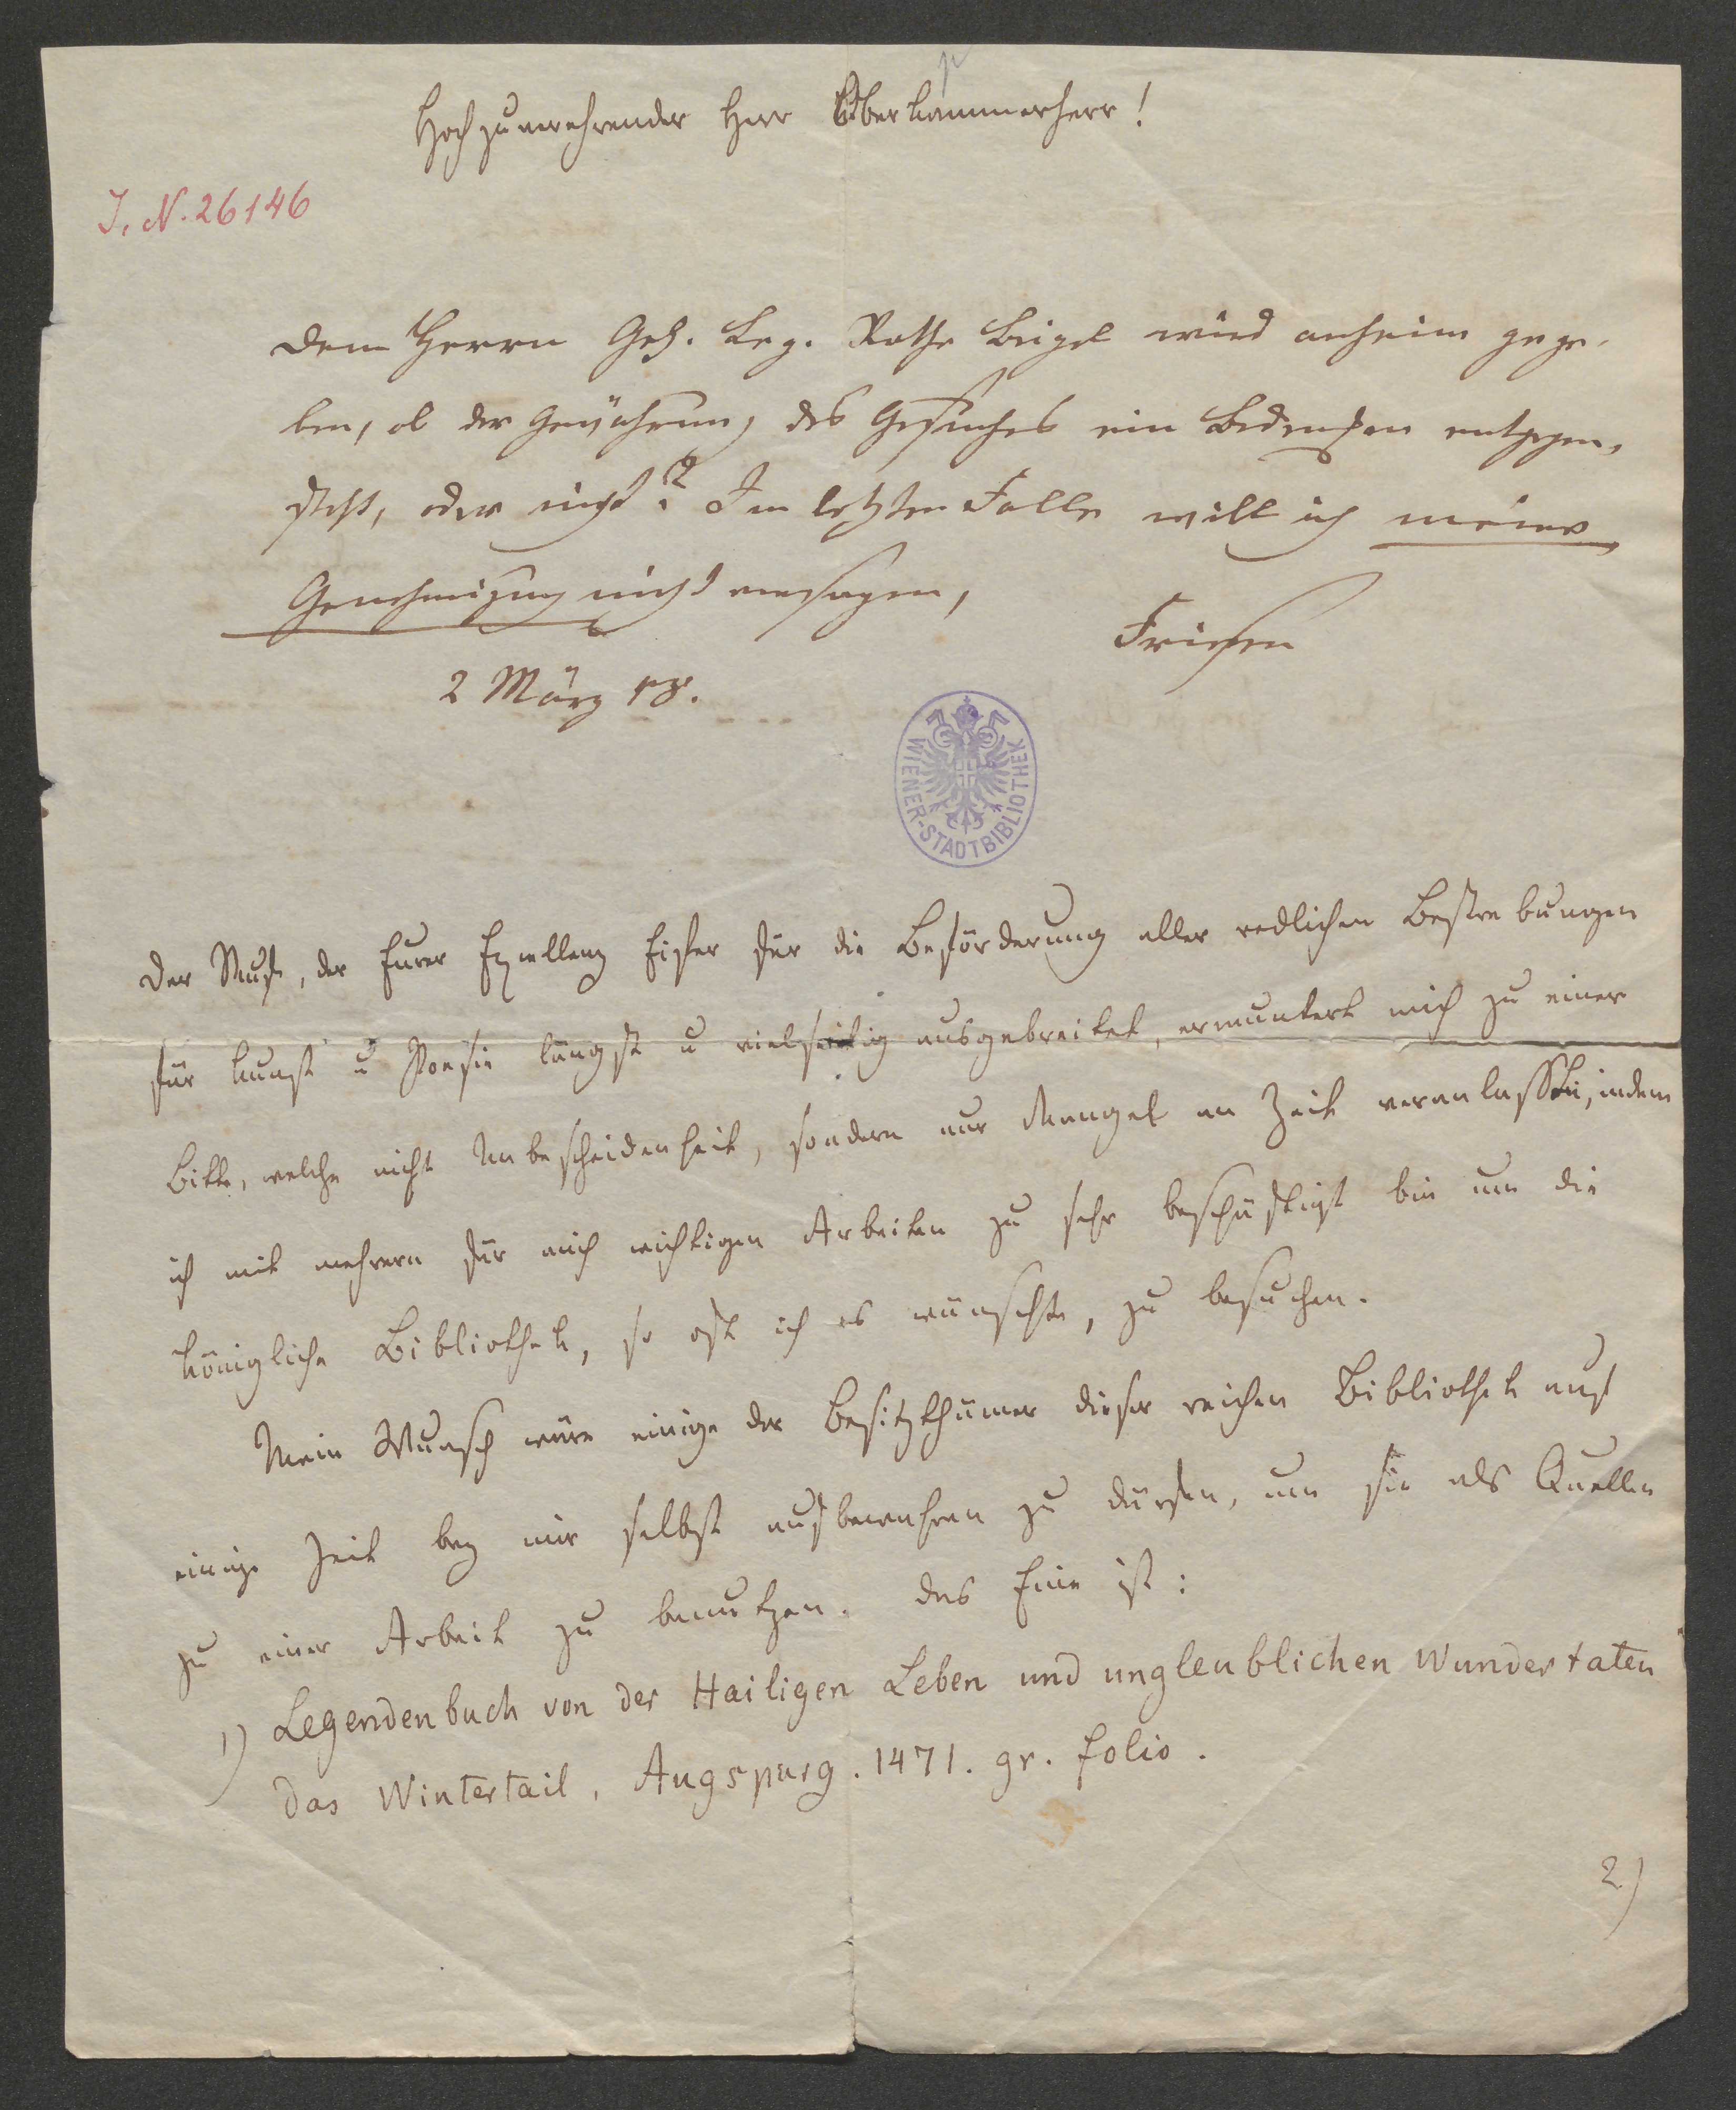 Hochzuverehrender Herr Oberkammerherr!
J. N. 26146
Dem Herrn Geh. Leg. Rathe Beigel wird anheim gege-
ben, ob der Gewährung des Gesuches ein Bedenken entgegen-
steht, oder nicht? Im letzten Falle will ich meine
Genehmigung nicht versagen,
Friesen
2 März 18.
WIENER-STADTBIBLIOTHEK
Der Ruf, der Eurer Exzellenz Eifer für die Beförderung aller redlichen Bestrebungen
für Kunst u Poesie längst u vielseitig ausgebreitet, ermuntert mich zu einer
Bitte, welche nicht Unbescheidenheit, sondern nur Mangel an Zeit veranlaßte, indem
ich mit mehrern für mich wichtigen Arbeiten zu sehr beschäftigt bin um die
königliche Bibliothek, so oft ich es wünschte, zu besuchen.
Mein Wunsch wäre einige der Besitzthümer dieser reichen Bibliothek auf
einige Zeit bey mir selbst aufbewahren zu dürfen, um sie als Quellen
zu einer Arbeit zu benutzen. Das Eine ist:
1) Legendenbuch von der Hailigen Leben und ungleublichen Wundertaten
das Wintertail, Augspurg. 1471. gr. folio.
2)